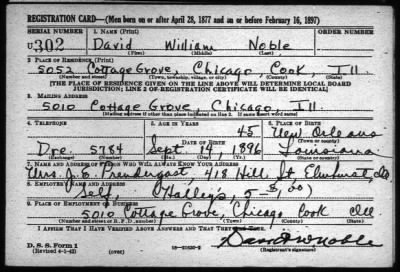 REGISTRATION CARD—(Men born on or after April 28, 1877 and on or before February 16, 1897)
SERIAL NUMBER 1. NAME (Print) ORDER NUMBER
U302 David William Noble
(First) (Middle) (Last)
2. PLACE OF RESIDENCE (Print)
5052 Cottage Grove, Chicago, Cook Ill.
(Number and street) (Town, township, village, or city) (County) (State)
[THE PLACE OF RESIDENCE GIVEN ON THE LINE ABOVE WILL DETERMINE LOCAL BOARD
JURISDICTION; LINE 2 OF REGISTRATION CERTIFICATE WILL BE IDENTICAL]
3. MAILING ADDRESS
5010 Cottage Grove, Chicago, Ill.
(Mailing address if other than place indicated on line 2. If same insert word same)
4. TELEPHONE 5. AGE IN YEARS 6. PLACE OF BIRTH
45 New Orleans
DATE OF BIRTH (Town or county)
Dre. 5784 Sept 14 1896 Louisiana
(Exchange) (Number) (Mo.) (Day) (Yr.) (State or country)
7. NAME AND ADDRESS OF PERSON WHO WILL ALWAYS KNOW YOUR ADDRESS
Mrs. J. E. Prendergast, 418 Hill St Elmhurst, Ill
8. EMPLOYER'S NAME AND ADDRESS
Self,
9. PLACE OF EMPLOYMENT OR BUSINESS
5010 Cottage Grove, Chicago Cook Ill
(Number and street or R. F. D. number) (Town) (County) (State)
I AFFIRM THAT I HAVE VERIFIED ABOVE ANSWERS AND THAT THEY ARE TRUE.
D. S. S. Form 1 David W Noble
(Revised 4-1-42) (over) (Registrant's signature)